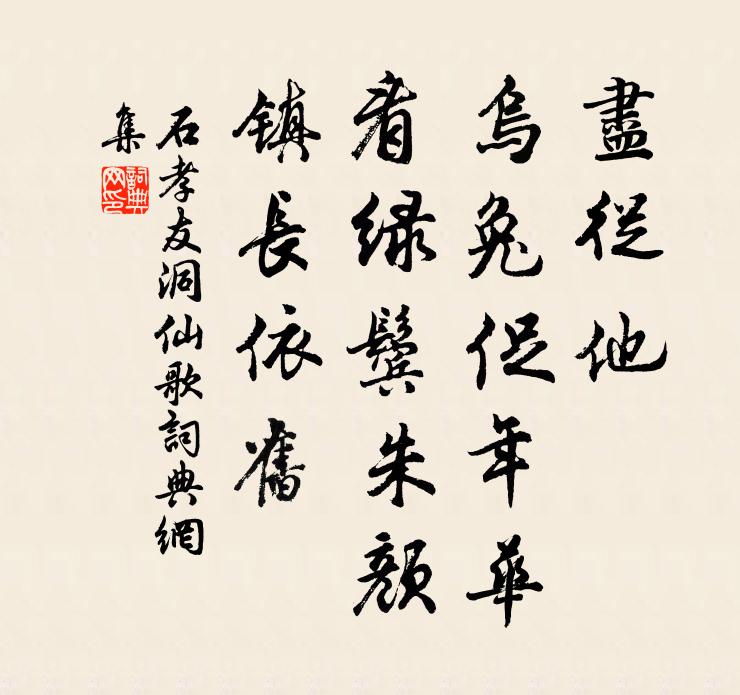 盡從他
烏兔促年華
看綠鬢朱顏
鎮長依舊
石孝友洞仙歌詞典網
集
詞典
网印